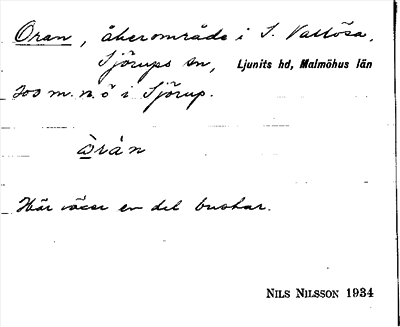 Oran, åkerområde i S. Vallösa,
Sjörups sn, Ljunits hd, Malmöhus län
200 m. n. ö i Sjörup.
òrån
Här växer en del buskar.
NILS NILSSON 1934